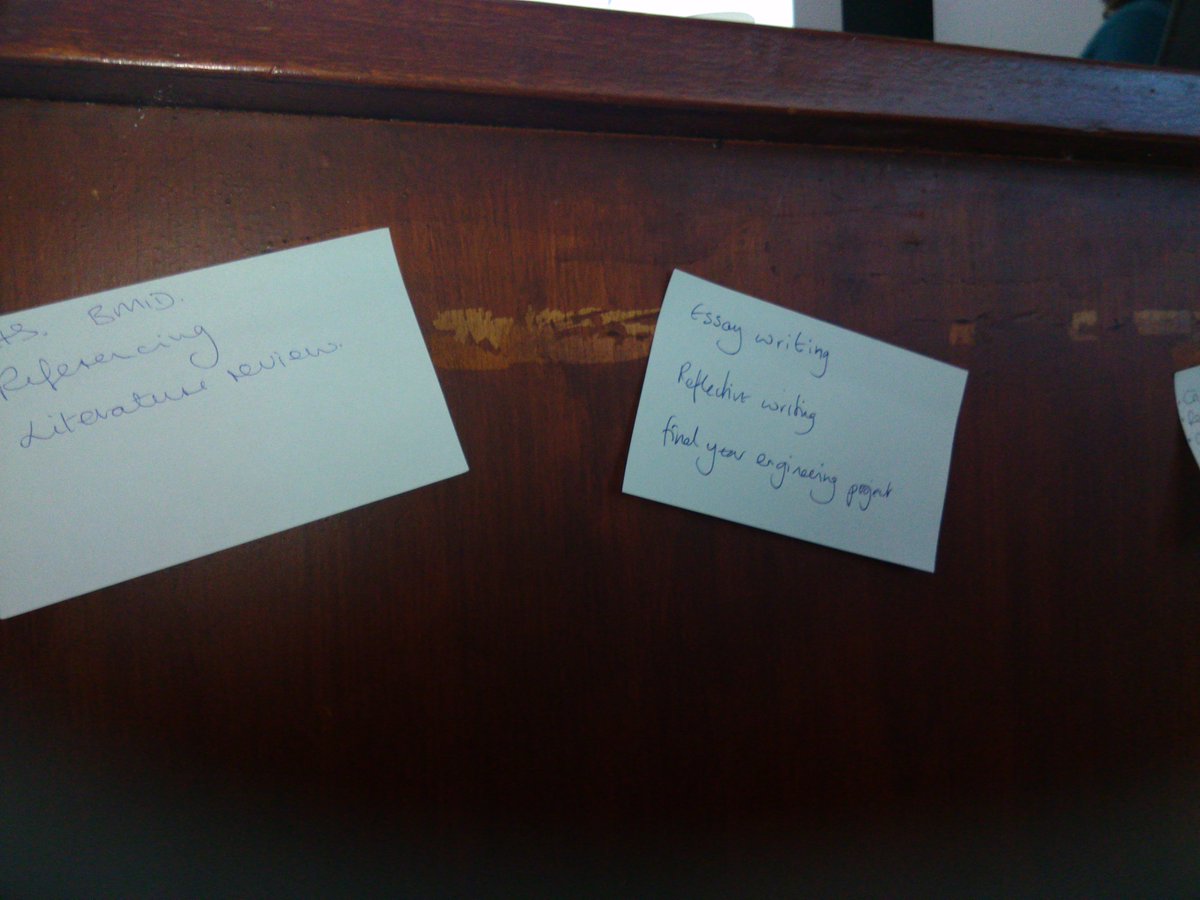 BMID.
Referencing
Literature review.
Essay writing
Reflective writing
final year engineering project